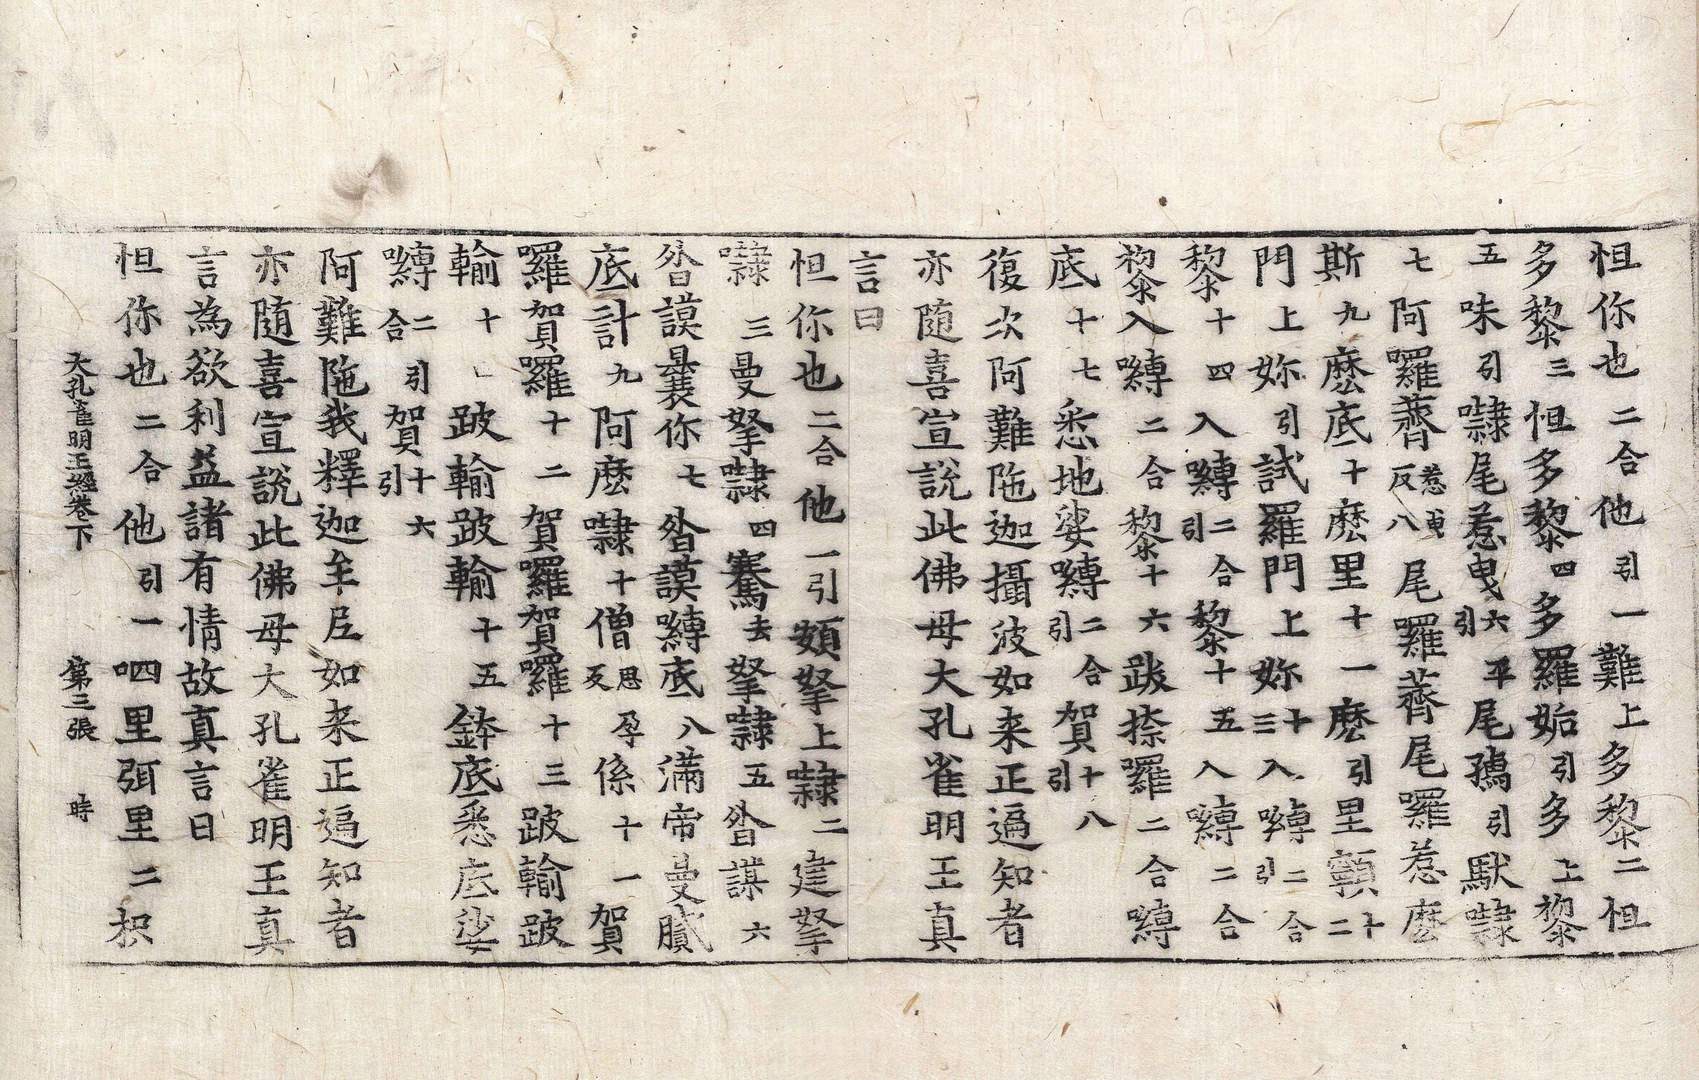 怛你也二合他引一難上多黎二怛
多黎三怛多黎四多羅姤引多上黎
五味引㘑尾惹曳六引平尾鴆引馱㘑
七阿囉薺惹曳反八尾囉薺尾囉惹麼
斯九麼底十麼里十一麼引里顊十二
門上妳引試羅門上妳十三入嚩二合引
黎十四入嚩二合引黎十五入嚩二合
黎入嚩二合黎十六跋捺囉二合嚩
底十七悉地娑嚩二合引賀十八引
復次阿難陁迦攝波如来正遍知者
亦随喜宣說此佛母大孔雀明王真
言曰
怛你也二合他一引頞拏上㘑二建拏
㘑三曼拏㘑四騫去拏㘑五昝謨六
昝謨曩你七昝謨嚩底八滿帝曼膩
底計九阿麼㘑十僧思孕反係十一賀
囉賀囉十二賀囉賀囉十三跛輸跛
輸十跛輸跛輸十五鉢底悉底娑
嚩二合引賀十六引
阿難陁我釋迦牟尼如来正遍知者
亦隨喜宣說此佛母大孔雀明王真
言為欲利益諸有情故真言曰
怛你也二合他引一呬里弭里二枳
大孔雀明王經卷下 第三張 時